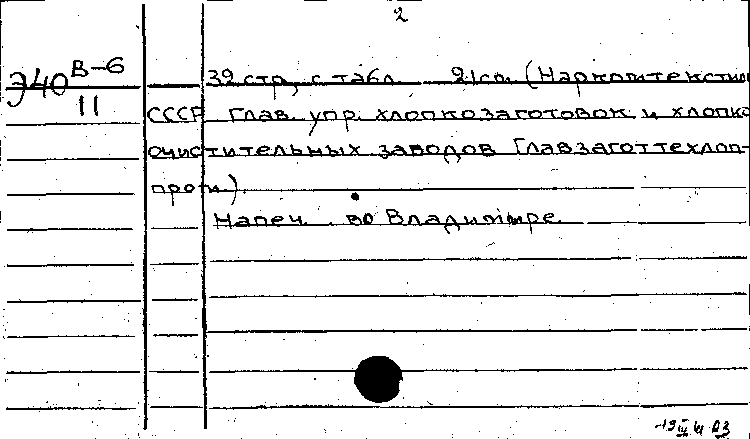 2
Э40 В-6
11
32 стр, с табл 21см. (Наркомтекстиль
СССР Глав. упр. хлопкозаготовок и хлопко
очистительных заводов Главзаготтехлоп-
пром.)
Напеч. во Владимире